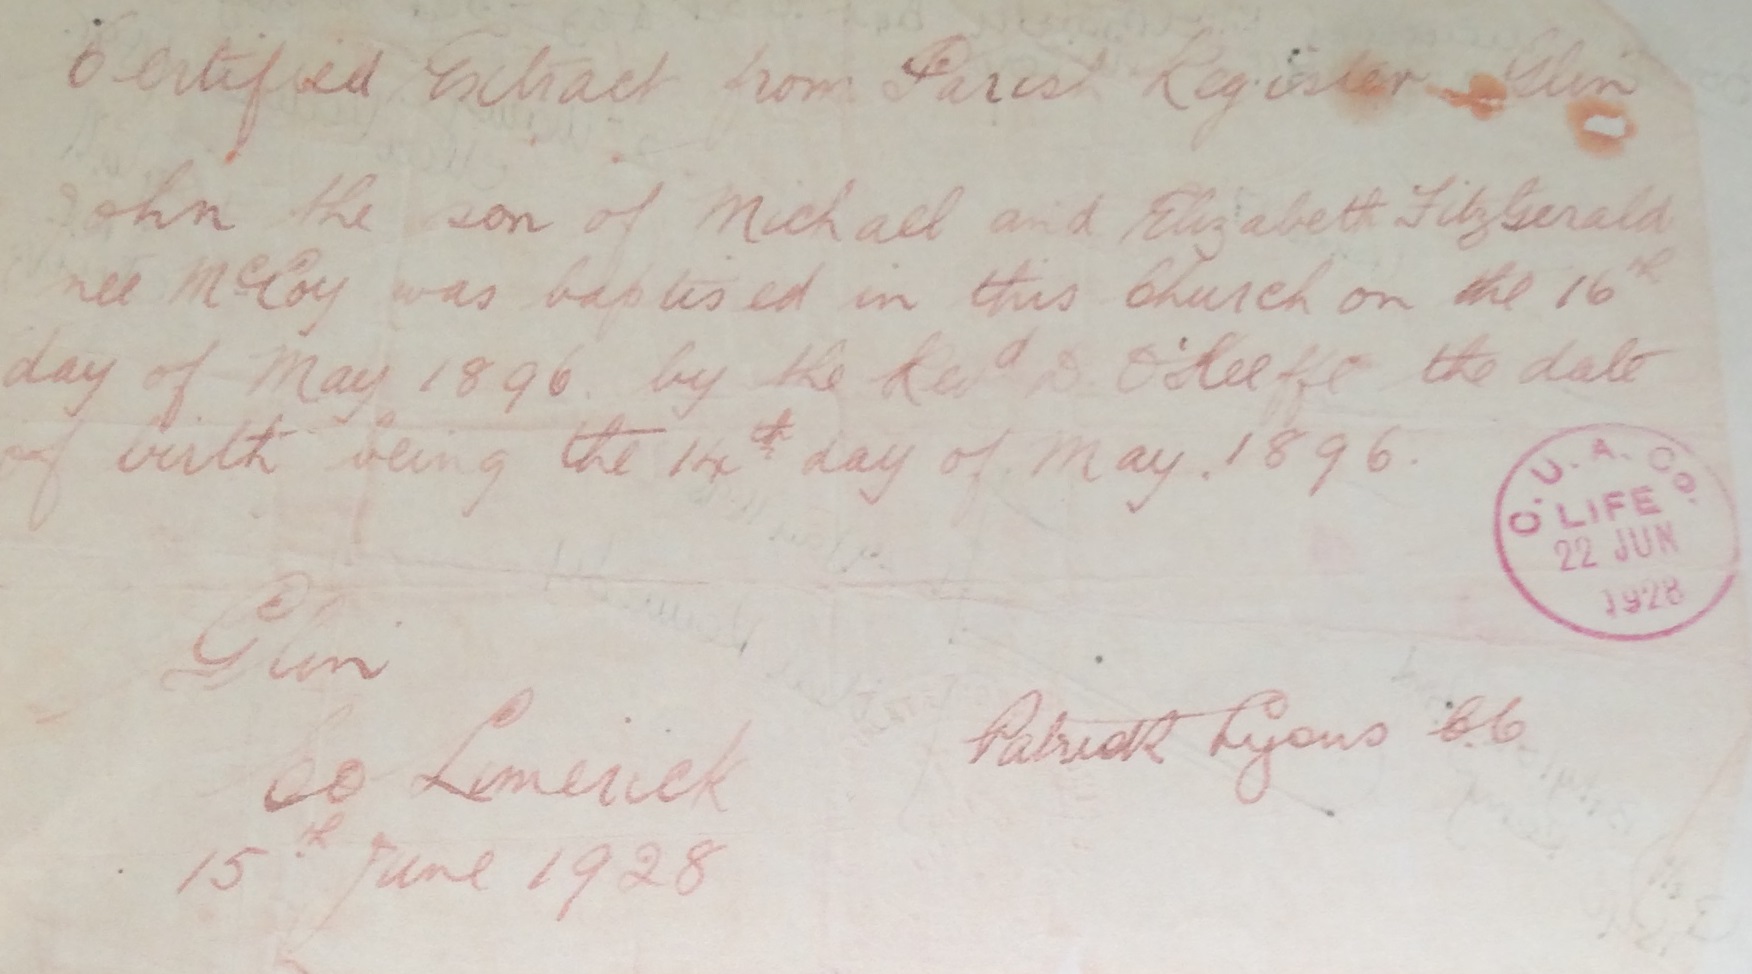 Certified Extract from Parish Register - Glin
John the son of Michael and Elizabeth FitzGerald
nee McCoy was baptised in this Church on the 16th
day of May 1896. by the Revd D. O'Keeffe the date
of birth being the 14th day of May. 1896.
C.U.A.Co.
LIFE
22 JUN
1928
Glin
Co Limerick
15th June 1928
Patrick Lyons C.C.